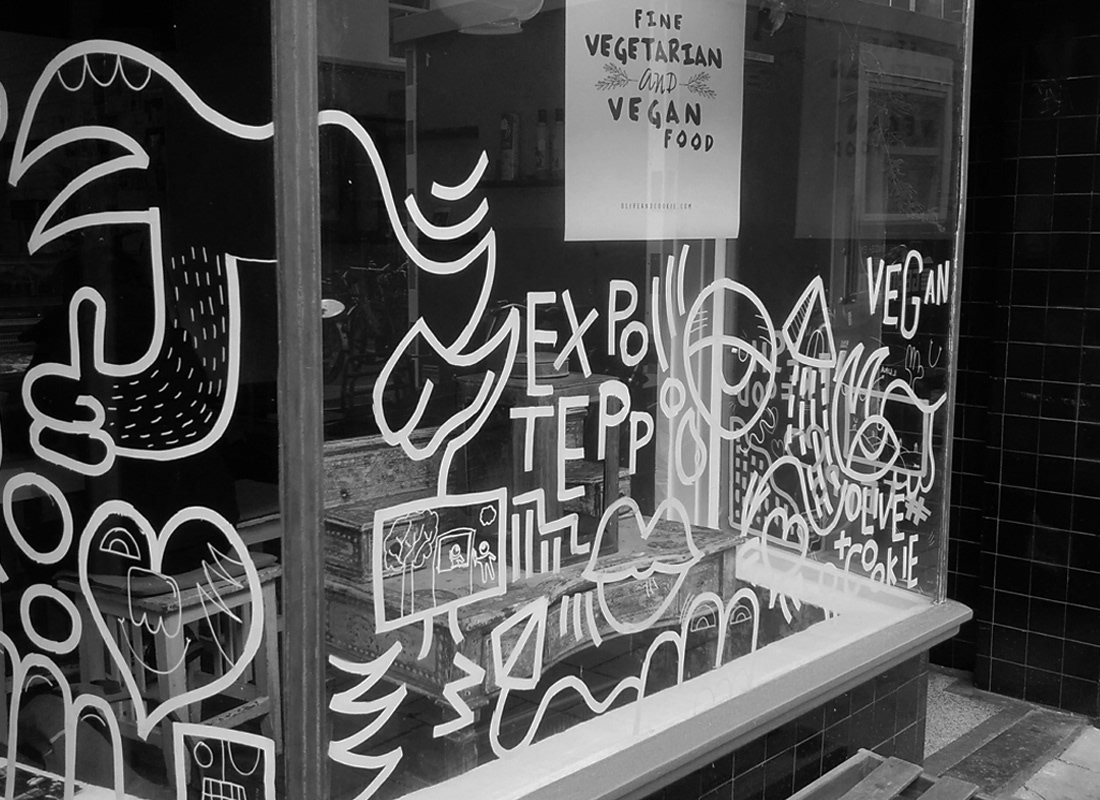 FINE
VEGETARIAN
AND
VEGAN
FOOD
OLIVEANDCOOKIE.COM
VEGAN
EXPO
TEPP
OLIVE
+COOKIE